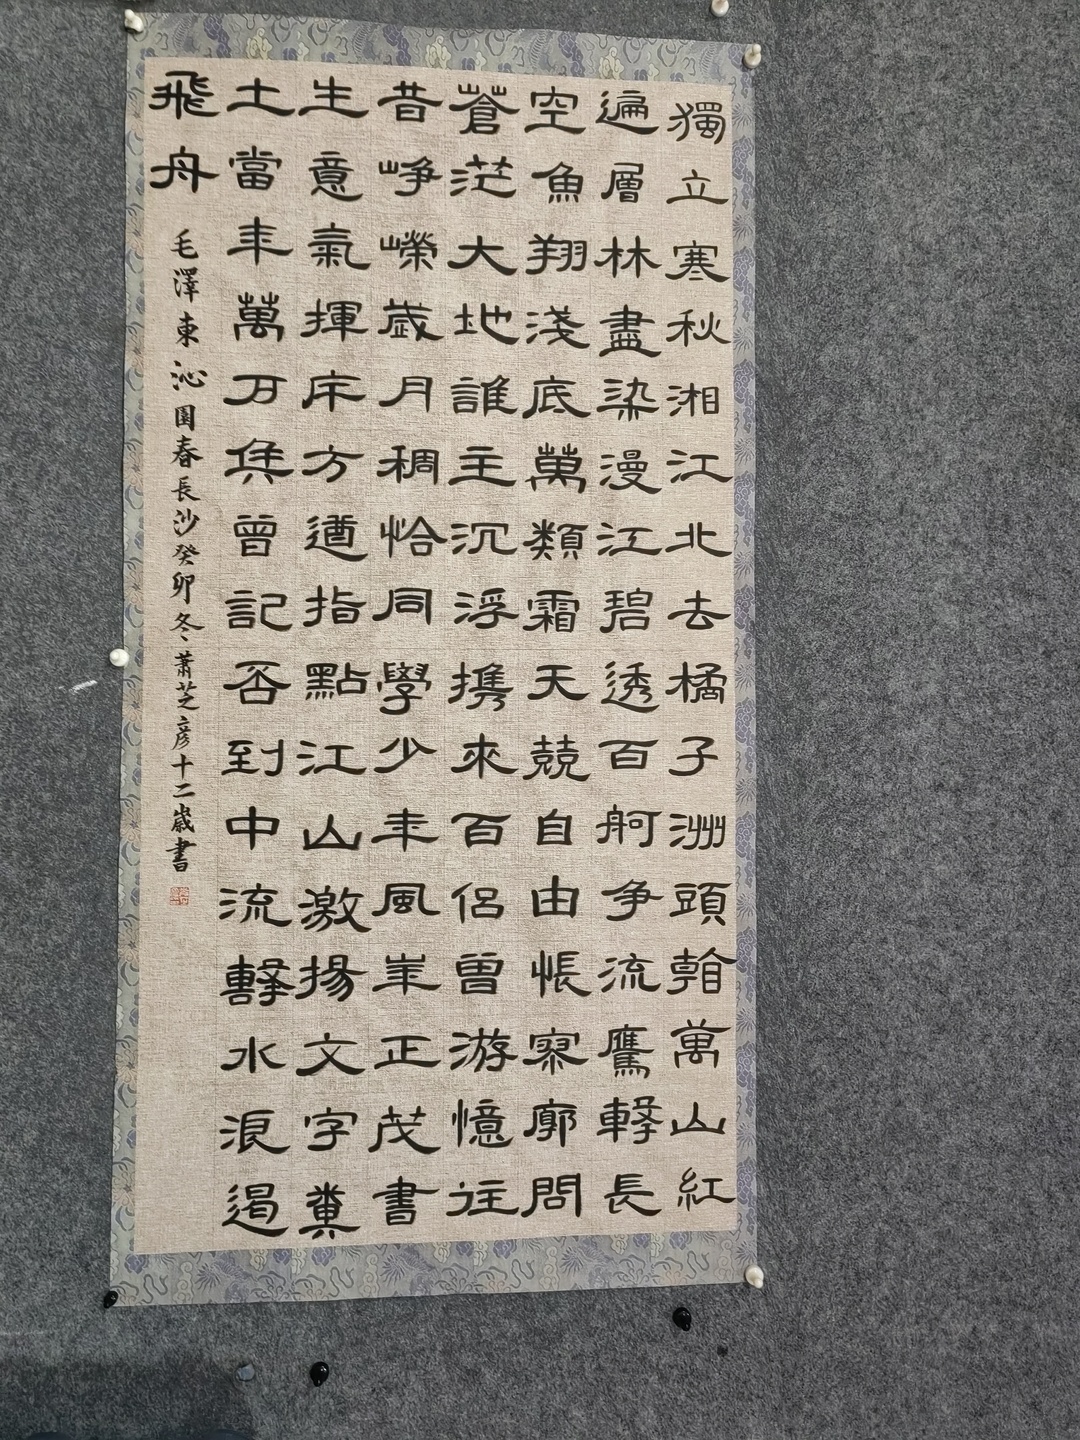 獨立寒秋湘江北去橘子洲頭看萬山紅
遍層林盡染漫江碧透百舸争流鷹擊長
空魚翔淺底萬類霜天競自由悵寥廓問
蒼茫大地誰主沉浮携來百侣曾游憶往
昔崢嶸歲月稠恰同學少年風華正茂書
生意氣揮斥方遒指點江山激揚文字糞
土當年萬户侯曾記否到中流擊水浪遏
飛舟
毛澤東沁園春長沙癸卯冬蕭芝彦十二歲書